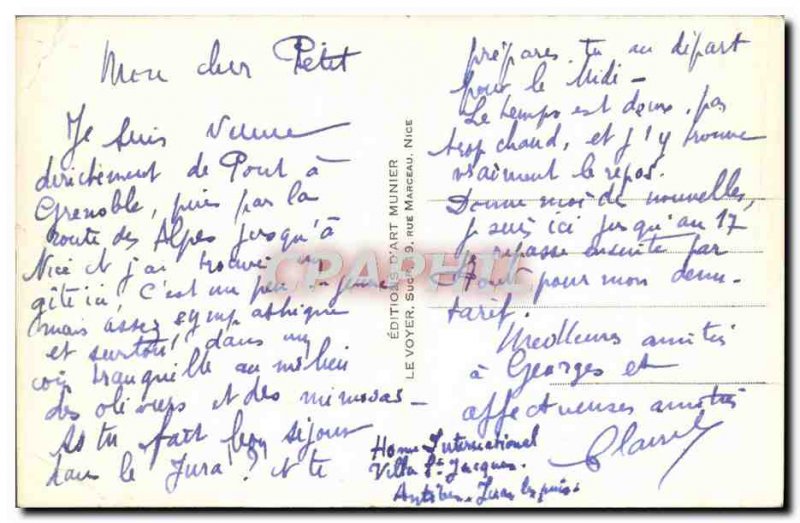 Mon cher Petit
Je suis venue
directement de Pont à
Grenoble, puis par la
route des Alpes jusqu'à
Nice et j'ai trouvé un
gîte ici. C'est un peu
mais assez sympathique
et surtout dans un
coin tranquille au milieu
des oliviers et des mimosas -
As tu fait bon séjour
dans le Jura? et te
prépares tu au départ
pour le Midi -
Le temps est doux, pas
trop chaud, et j'y trouve
vraiment le repos.
Donne moi de nouvelles,
je suis ici jusqu'au 17
je repasse ensuite par
Pont pour mon demi
tarif.
Meilleurs amitiés
à Georges et
affectueuses amitiés
Home International
Villa St Jacques.
Antibes. Juan les pins.
ÉDITIONS D'ART MUNIER
LE VOYER, Sucr, 9, RUE MARCEAU, NICE
CAPHILA